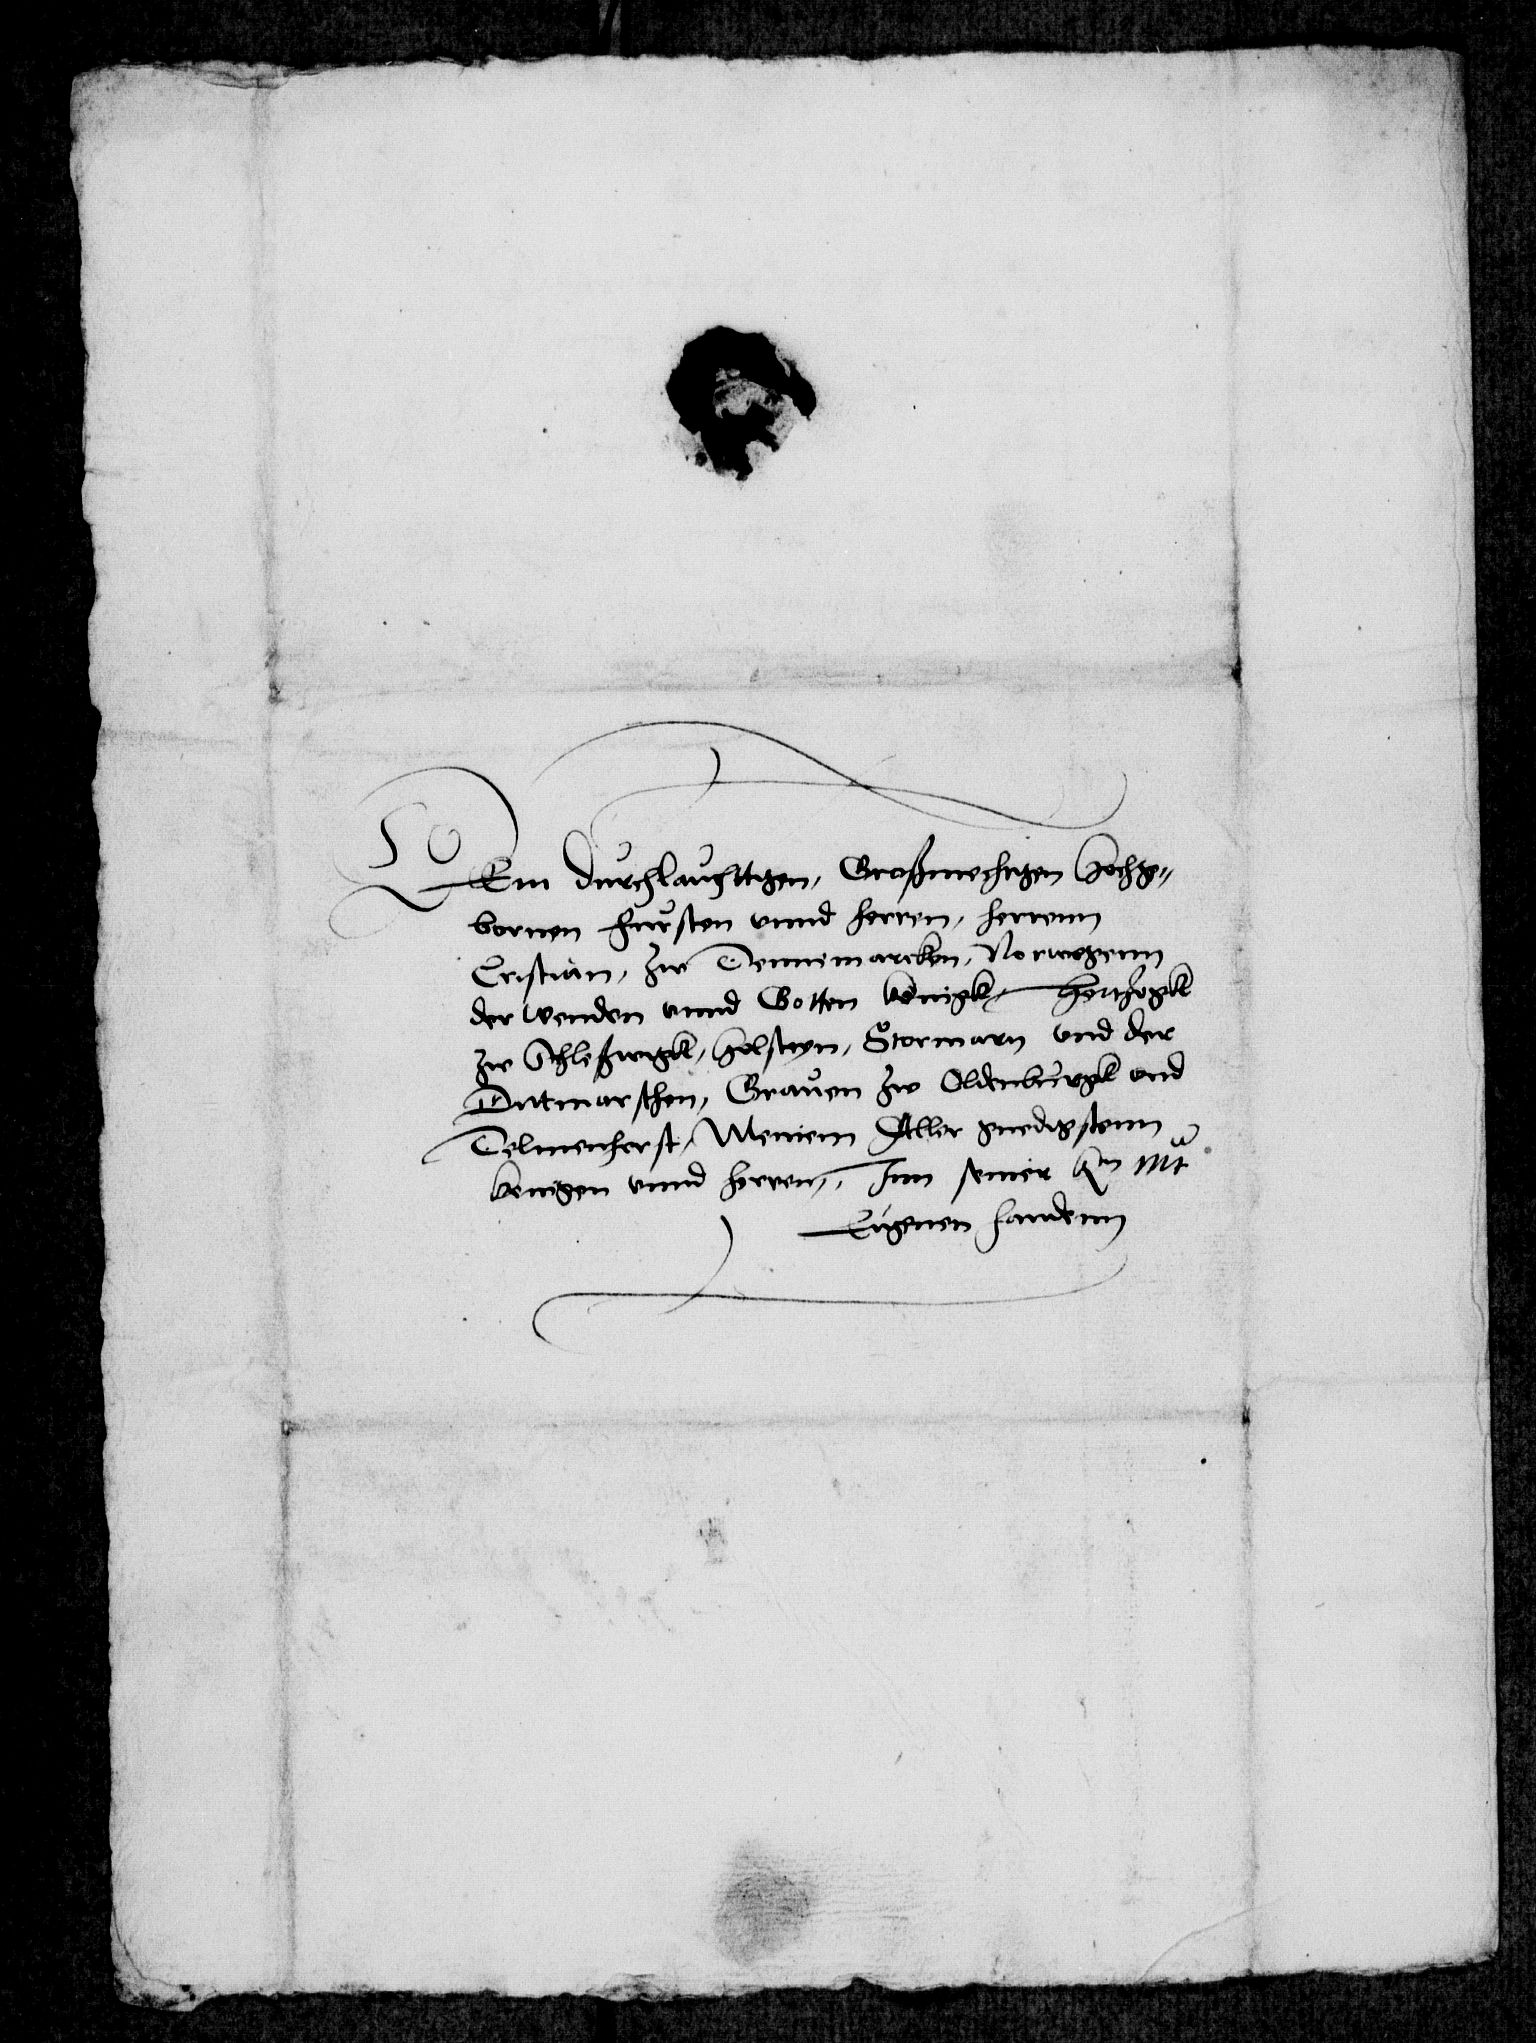 DEm durchlauchttigen, Großmechtigen Hochge„
bornen Fursten vnnd herren, herrenn
Cristian, zw Dennemarcken, Norwegenn
der wenden vnnd Gotten kenigk, Hertzogk
zw Schleßwigk, Holsteyn, Stormarn vnd der
Ditmarschen, Grauen zw Oldenburgk vnd
Delmenhorst, Meinem Aller gnedigstenn
kenigen vnnd herren, Inn seiner kn Mt
Eugenen handenn